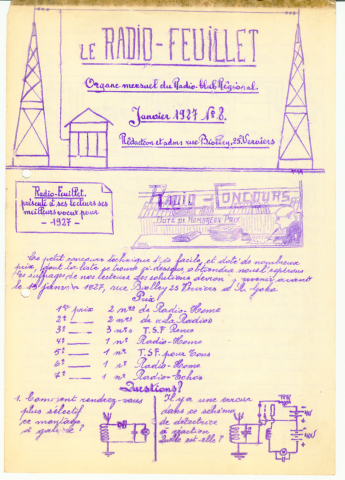 LE RADIO-FEUILLET
Organe mensuel du Radio-Club Régional.
Janvier 1927 No 2.
Rédaction et adm: rue Biolley, 25, Verviers
Radio-Feuillet,
présente à ses lecteurs ses
meilleurs voeux pour
- 1927 -
RADIO-CONCOURS
DOTÉ DE NOMBREUX PRIX
Ce petit concours technique facile, et doté de nombreux
prix, dont la liste se trouve ci-dessous obtiendra nous l'espérons
les suffrages de nos lecteurs. Les solutions devront parvenir avant
le 15 janvier 1927, rue Biolley 25 Verviers
Prix
1er prix 2 nos de Radio-Home
2e — 2 nos de la Radio
3e — 3 nos T.S.F.
4e — 1 no Radio-Home
5e — 1 no T.S.F. pour Tous
6e — 1 no Radio-Home
7e — 1 no Radio-Echos
Questions?
1. Comment rendrez-vous
plus sélectif
ce montage
à galène?
Il y a une erreur
dans ce schéma
de détectrice
à réaction
Quelle est-elle?